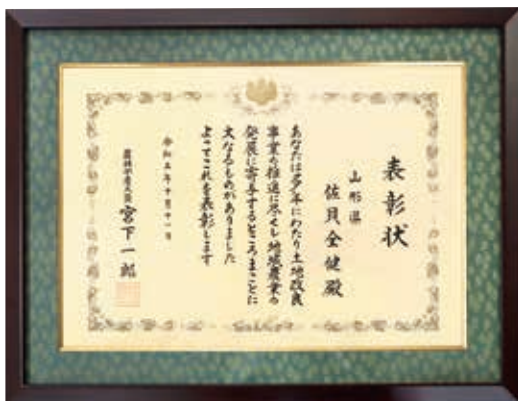 表彰状
山形県
佐貝全健殿
あなたは多年にわたり土地改良
事業の推進に尽くし地域農業の
発展に寄与するところまことに
大なるものがありました
よってこれを表彰します
令和五年十月十一日
農林水産大臣 宮下一郎